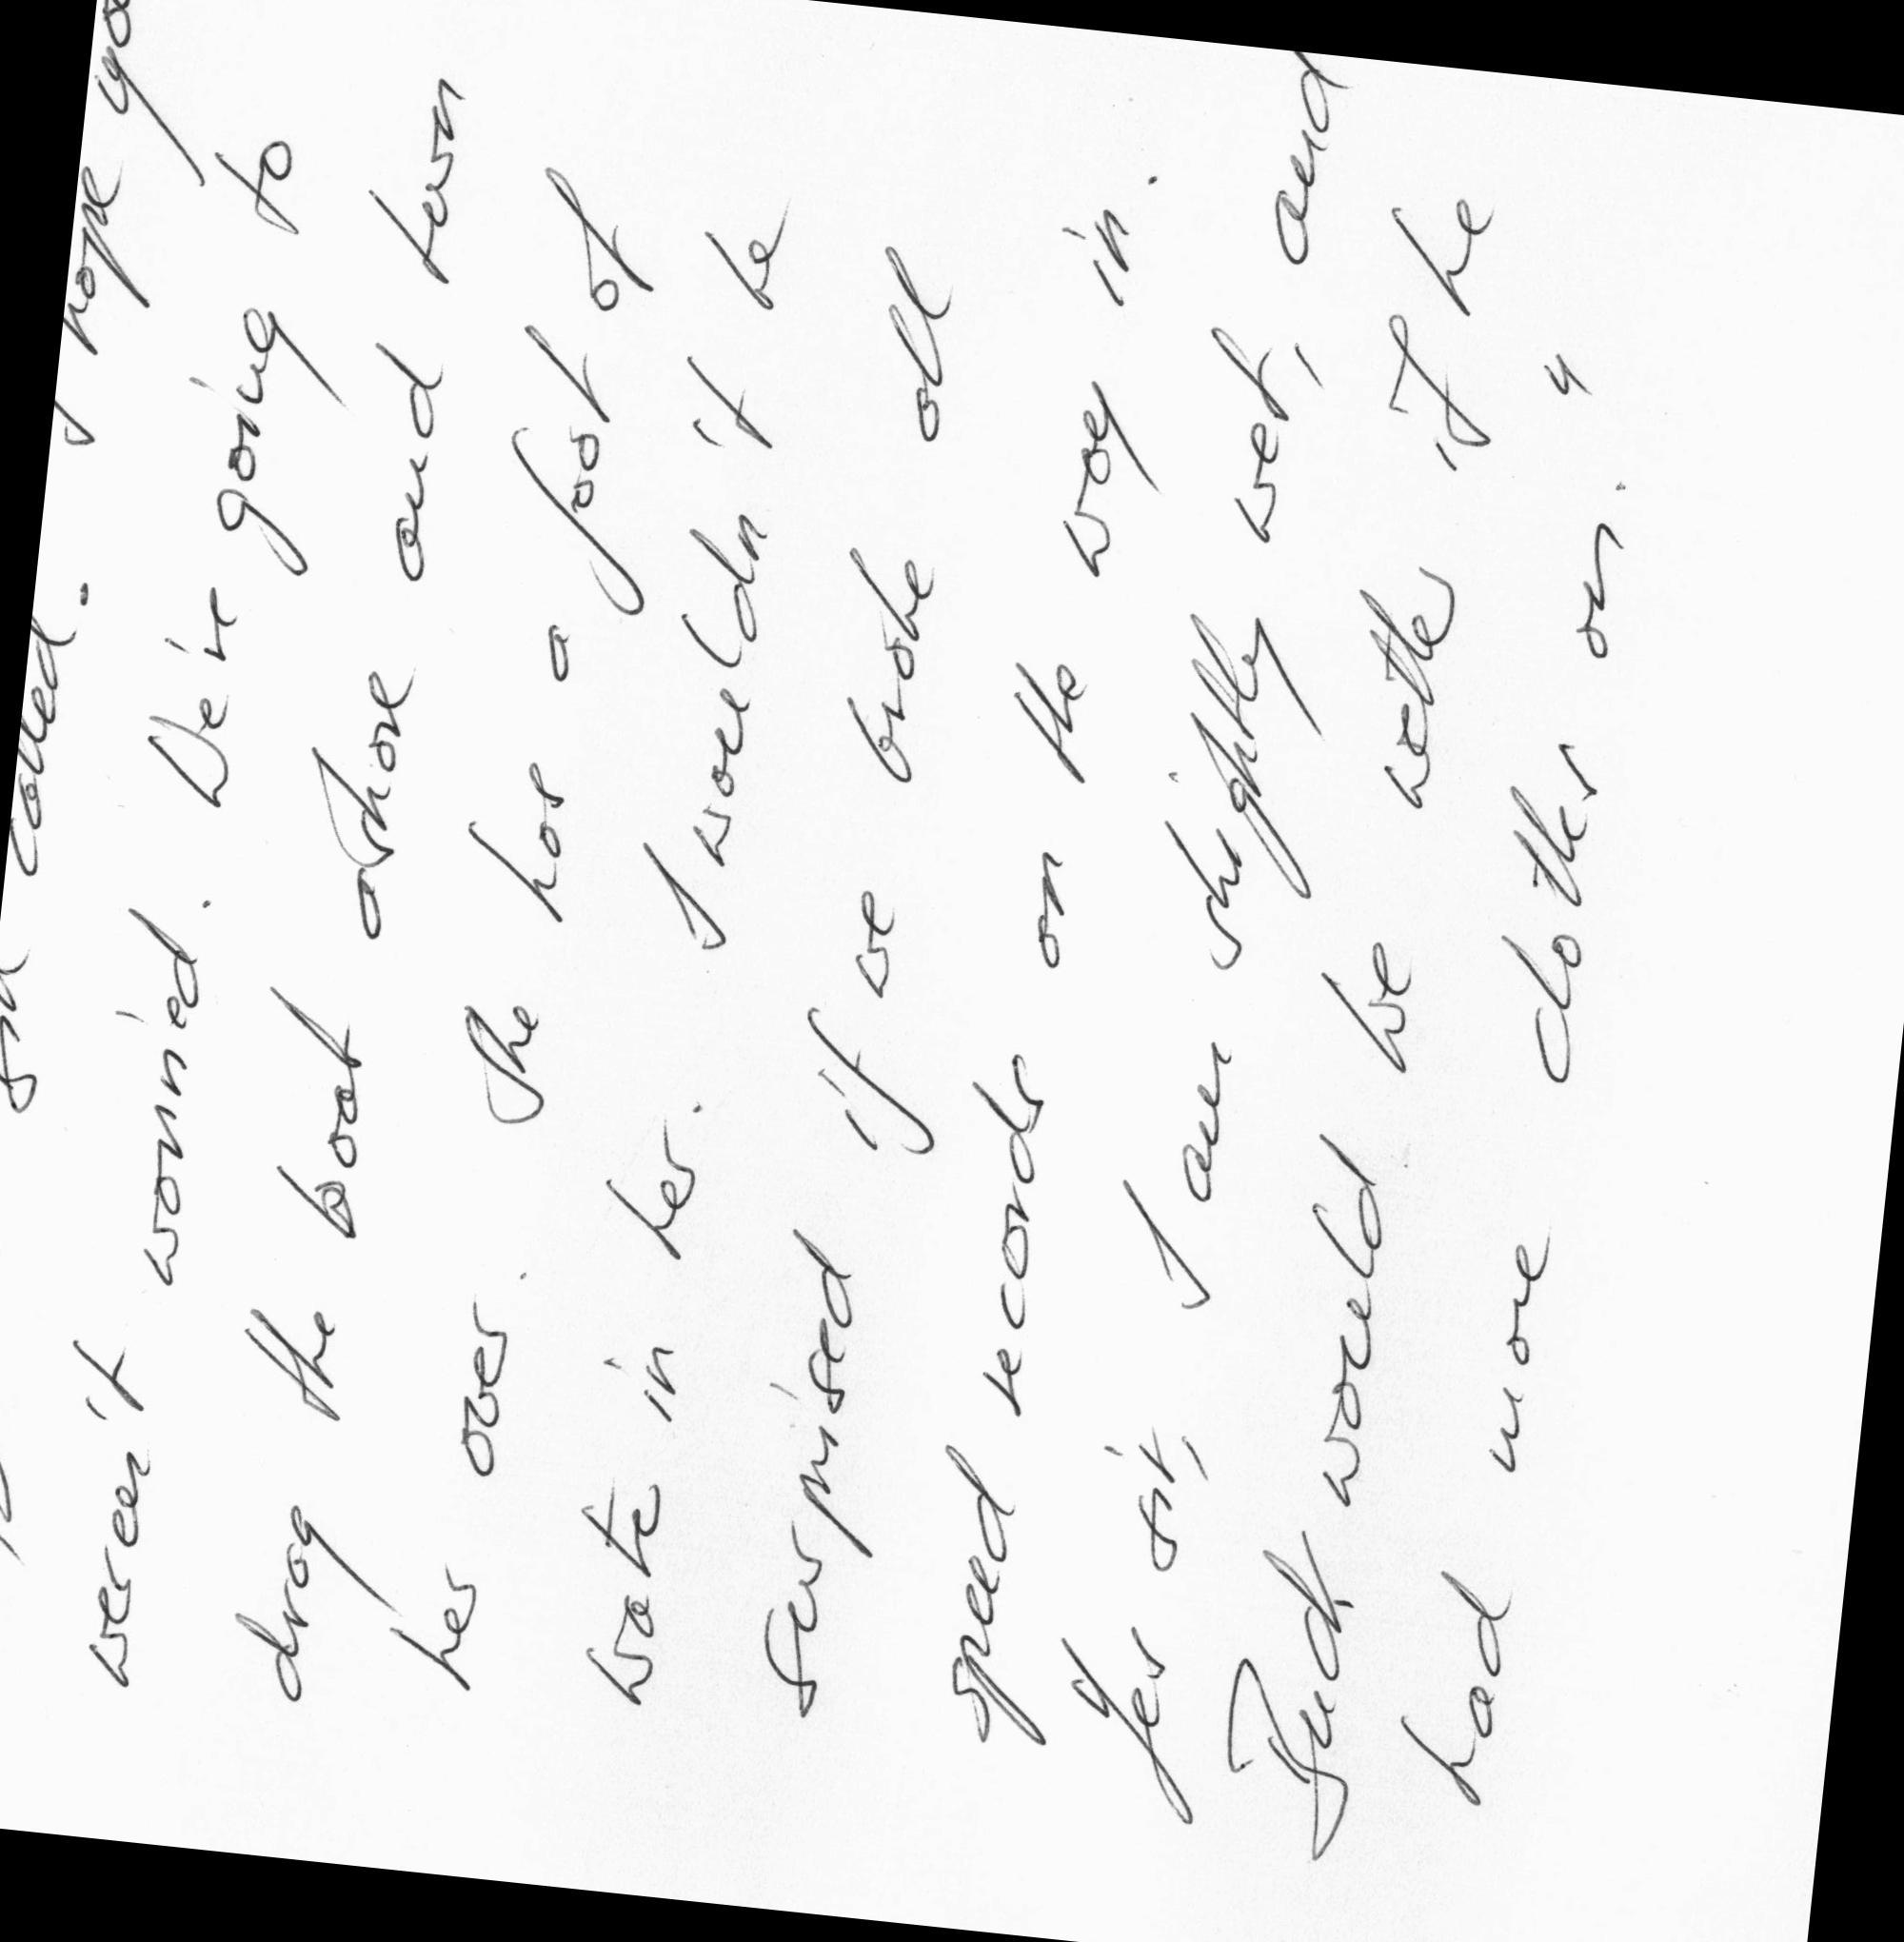 called. " I hope you
weren't worried. We're going to
drag the boat ashore and turn
her over. She has a foot of
wate in her. I wouldn't be
surprised if we broke all
speed records on the way in.
Yes sir, I am slightly wet, and
Judt would be wetter if he
had more clothes on. "